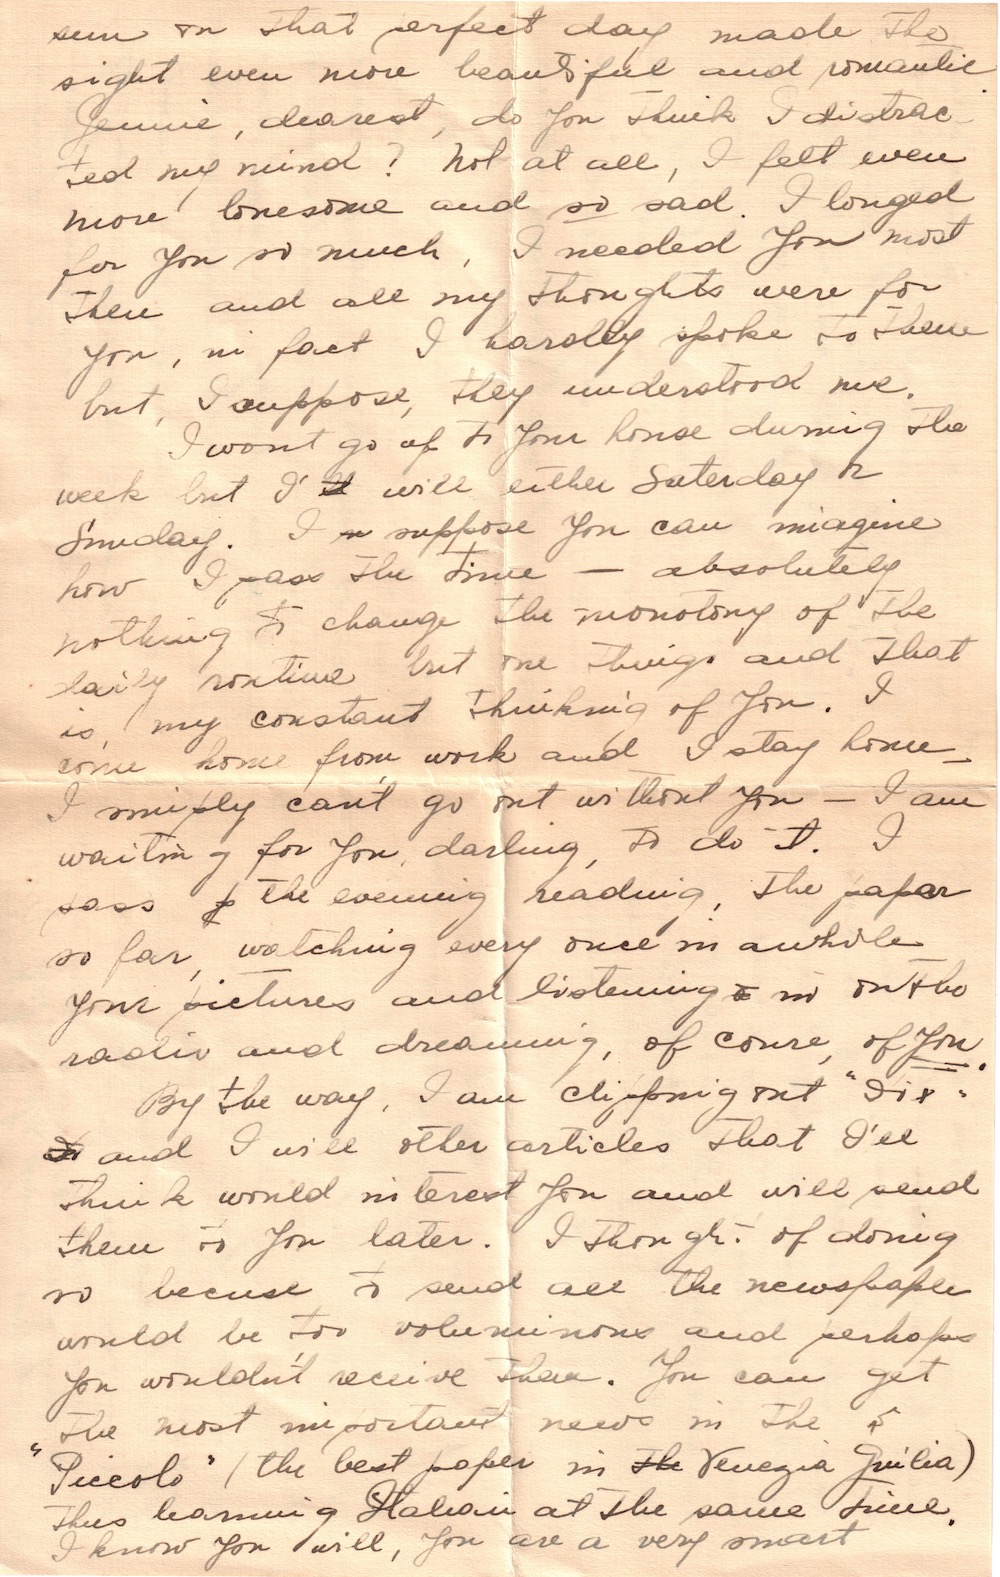 sun on that perfect day made the
sight even more beautiful and romantic.
Jennie, dearest, do You think I distrac-
ted my mind? Not at all, I felt even
more lonesome and so sad. I longed
for You so much, I needed You most
then and all my thoughts were for
You, in fact I hardly spoke to them
but, I suppose, they understood me.
I wont go up to Your house during the
week but I' will either Saterday or
Sunday. I suppose You can imagine
how I pass the time — absolutely
nothing to change the monotony of the
daily routine but one things and that
is, my constant thinking of You. I
come home from work and I stay home —
I simply can't go out without You — I am
waiting for You, darling, to do it. I
pass the evening reading, the paper
so far, watching every once in awhile
Your pictures and listening in on the
radio and dreaming, of course, of You.
By the way, I am clipping out "Dix"
and I will other articles that I'll
think would interest You and will send
them to You later. I thought of doing
so becuse to send all the newspaper
would be too voluminous and perhaps
You wouldn't receive them. You can get
the most important news in the
"Piccolo" (the best paper in the Venezia Giulia)
thus learning Italian at the same time.
I know You will, You are a very smart